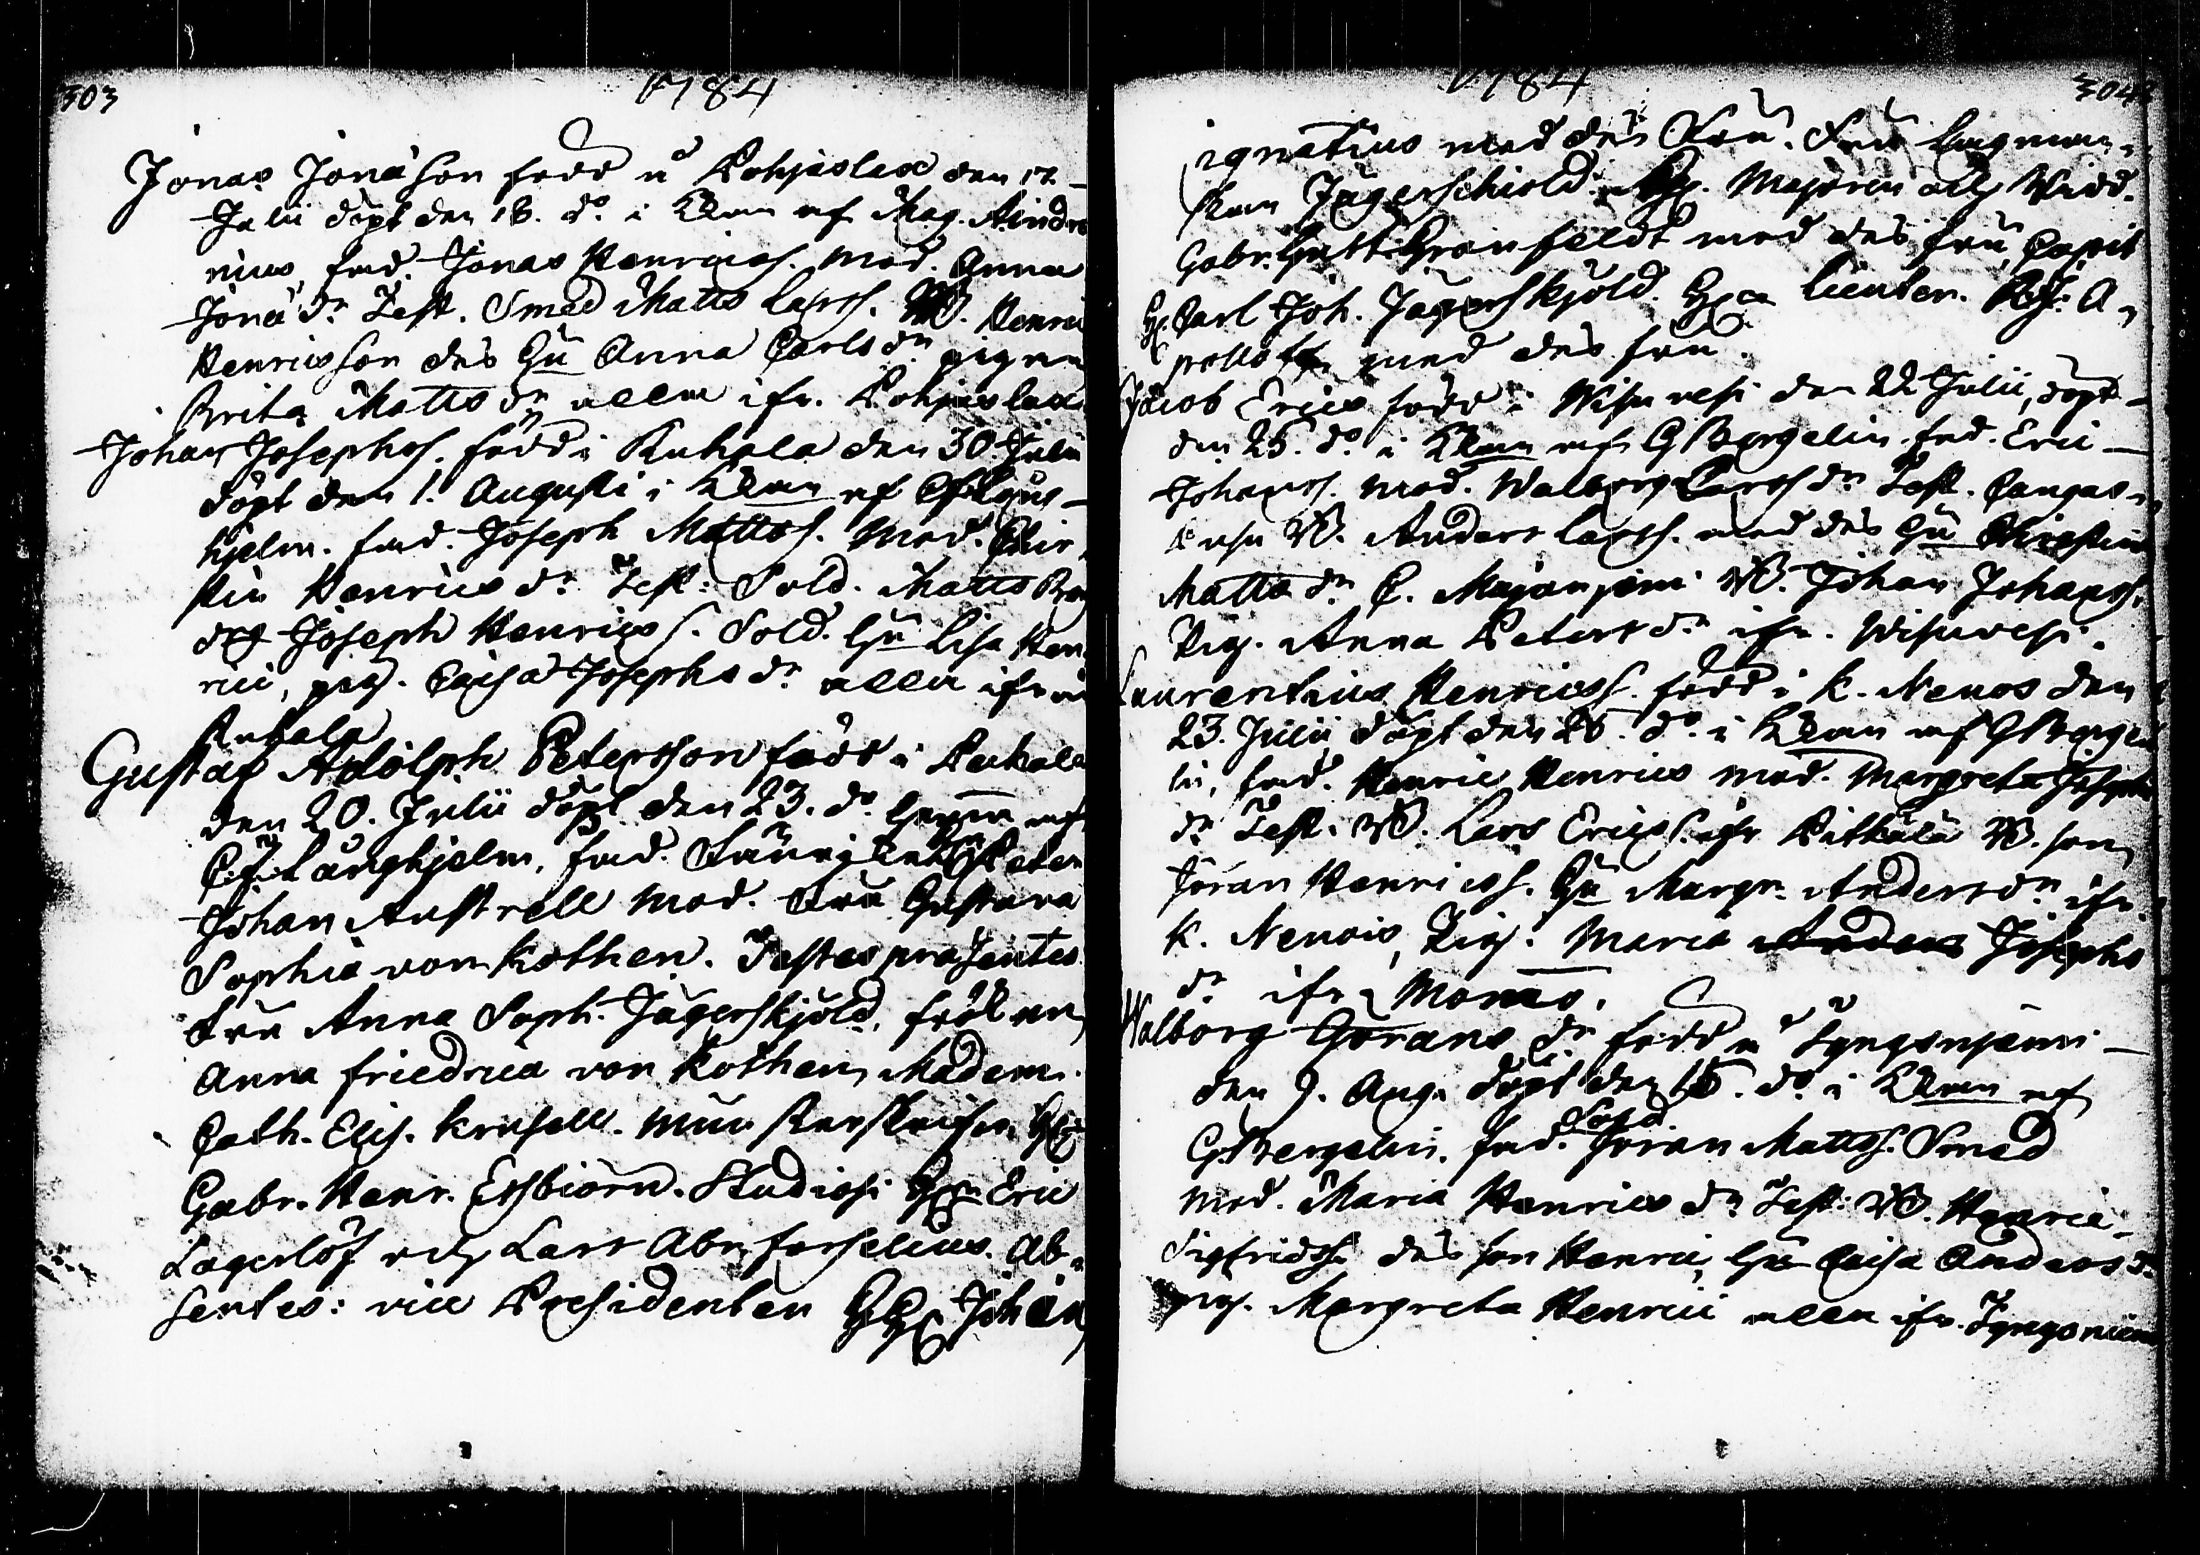 303
1784
Jonas Jonasson född i Pohjaslax den 17
Julii döpt den 18. do. i Kkan af Mag. Aindre
nius, fad. Jonas Henricss. mod. Anna
Jona dr Test. Smed Matts Larss. B. Henric
Henricsson des hu Anna Carls dr pigan
Brita Matts dr alla ifr. Pohjaslax
Johan Josephss. född i Ruhala den 30. Julii
döpt den 1. Augusti i Kkan af CF Lång-
hjelm. fad. Joseph Mattss. mod. Chir
stin Henrics dr Test: Sold. Matts
Joseph Henricss. Sold. hu Lisa Hen
rici, pig. Caisa Josephs dr alla ifrån
Ruhala
Gustaf Adolph Petersson född i Ruhala
den 20. Julii döpt den 23. do. hemma af
C.F. Långhjelm, fad. Peter
Johan Austrell mod. Fru Gustava
Sophia von Kothen. Testes præsentes
Fru Anna Soph. Jägerskjöld, fröken
Anna Friedrica von Kothen, Madem.
Cath. Elis. Krusell. Hr
Gabr. Henr. Essbiörn. Studiosi Hrr Eric
Lagerlöf och Lars Abr. Forselius. Ab-
sentes: vice Presidenten Johan
1784
304
ignatius med des Fru. Fru Lagman-
skan Jägerschiold. Hr. Majoren och Ridd.
Gabr. Gust. Granfeldt med des fru, Capit
Hr. Carl Joh. Jägerskjöld. Lieuten. A-
pelloff med des fru.
Jacob Erics född i Wisuvesi den 22 Julii, döpt
den 25. do. i Kkan af G Bergelin fad. Eric
Johanss. mod. Walborg Larss dr Test. Cangas-
B. Anders Larss. med des hu Christina
Matts dr C. B. Johan Johanss.
Pig. Anna Peters dr ifr. Wisuvesi.
Laurentius Henricss. född i K. Nenos den
23. Julii döpt den 25. do. i Kkan af G Berge
lin, fad. Henric Henrics mod. Margreta Josephs
dr Test. B. Lars Ericss. ifr Pitkälä B. son
Jöran Henricss. hu Margr. Anders dr ifr.
K. Nenois, Pig. Maria Anders Josephs
dr ifr. Monas.
Walborg Görans dr född i Syngsnjemi
den 9. Aug. döpt den 15. do. i Kkan af
G Bergelin. fad. Sold. Jöran Mattss. Smed
mod. Maria Henrics dr Test: B. Henric
Sigfridss. des son Henric, hu Caisa Anders dr
pig. Margreta Henrici alla ifr. Syngsniemi